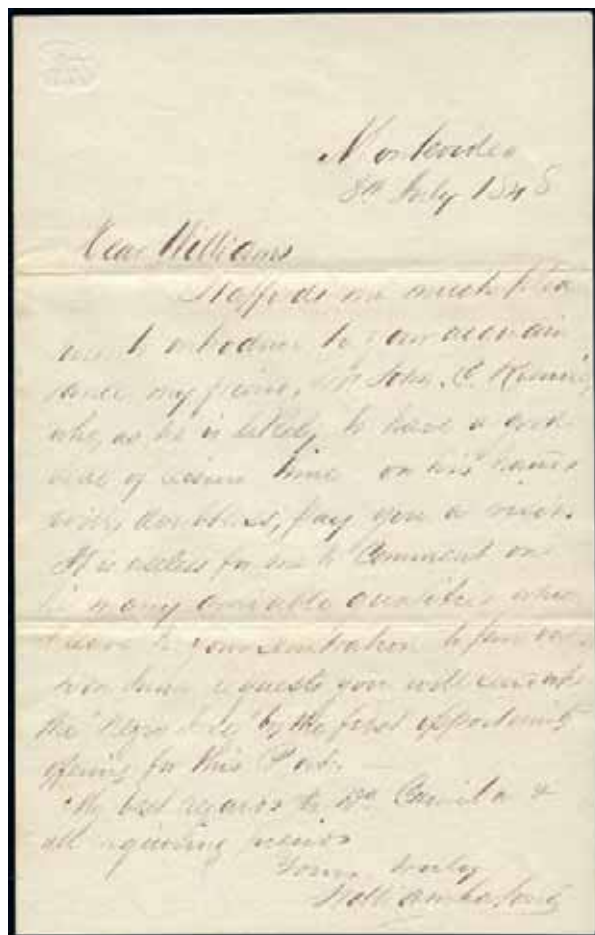 Montevideo
8th July 184
Dear Williams
It affords me much plea
introduce to your acquain
tance my friend, Mr John. C.
who, as he is likely to have a good
deal of leisure time on his hands
will, doubtless, pay you a visit.
It is useless for me to Comment on
his many amiable qualities which
I leave to your penetration to find out.
requests you will
the by the first opportunity
offering for this Port.
My best regards to Da Camila &
all inquiring friends
Yours truly